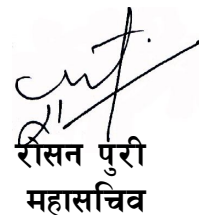 रोसन पुरी
महासचिव